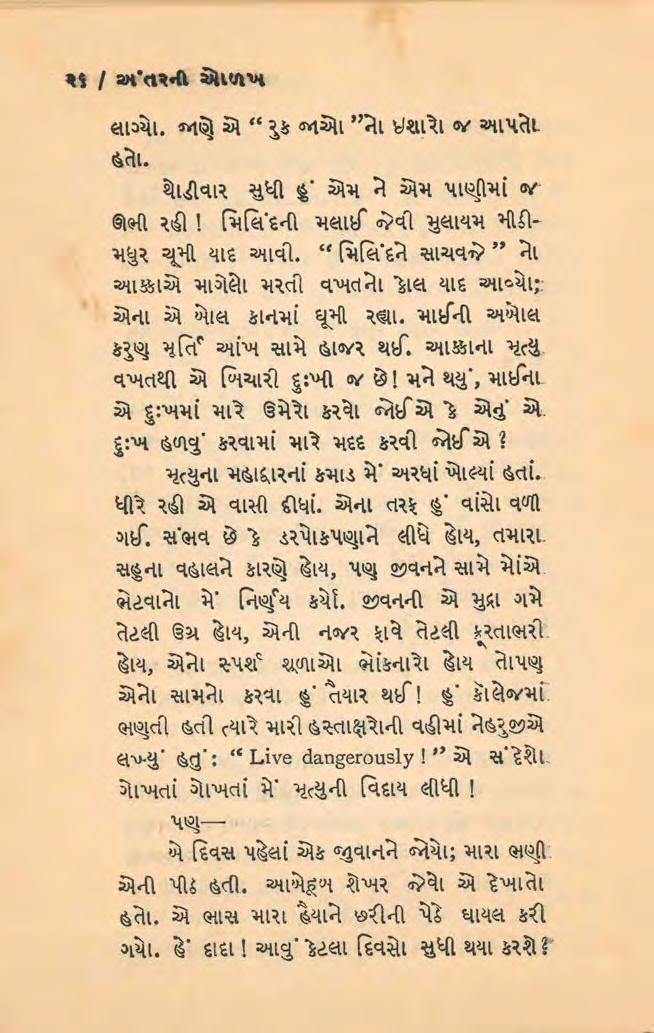 ૨૬ / અંતરની ઓળખ
લાગ્યો. જાણે એ “ રુક જાઓ ”નો ઇશારો જ આપતો
હતો.
થોડીવાર સુધી હું એમ ને એમ પાણીમાં જ
ઊભી રહી ! મિલિંદની મલાઈ જેવી મુલાયમ મીઠી-
મધુર ચૂમી યાદ આવી. “ મિલિંદને સાચવજે ” નો
આક્કાએ માગેલો મરતી વખતનો કોલ યાદ આવ્યો;
એના એ બોલ કાનમાં ઘૂમી રહ્યા. માઈની અબોલ
કરુણ મૂર્તિ આંખ સામે હાજર થઈ. આક્કાના મૃત્યુ
વખતથી એ બિચારી દુઃખી જ છે! મને થયું, માઈના
એ દુઃખમાં મારે ઉમેરો કરવો જોઈએ કે એનું એ
દુઃખ હળવું કરવામાં મારે મદદ કરવી જોઈએ ?
મૃત્યુના મહાદ્વારનાં કમાડ મેં અરધાં ખોલ્યાં હતાં.
ધીરે રહી એ વાસી દીધાં. એના તરફ હું વાંસો વળી
ગઈ. સંભવ છે કે ડરપોકપણાને લીધે હોય, તમારા
સહુના વહાલને કારણે હોય, પણ જીવનને સામે મોંએ
ભેટવાનો મેં નિર્ણય કર્યો. જીવનની એ મુદ્રા ગમે
તેટલી ઉગ્ર હોય, એની નજર ફાવે તેટલી ક્રૂરતાભરી
હોય, એનો સ્પર્શ શૂળાઓ ભોંકનારો હોય તોપણ
એનો સામનો કરવા હું તૈયાર થઈ ! હું કૉલેજમાં
ભણતી હતી ત્યારે મારી હસ્તાક્ષરોની વહીમાં નેહરુજીએ
લખ્યું હતું : “ Live dangerously ! ” એ સંદેશો
ગોખતાં ગોખતાં મેં મૃત્યુની વિદાય લીધી !
પણ—
બે દિવસ પહેલાં એક જુવાનને જોયો; મારા ભણી
એની પીઠ હતી. આબેહૂબ શેખર જેવો એ દેખાતો
હતો. એ ભાસ મારા હૈયાને છરીની પેઠે ઘાયલ કરી
ગયો. હેં દાદા ! આવું કેટલા દિવસો સુધી થયા કરશે ?